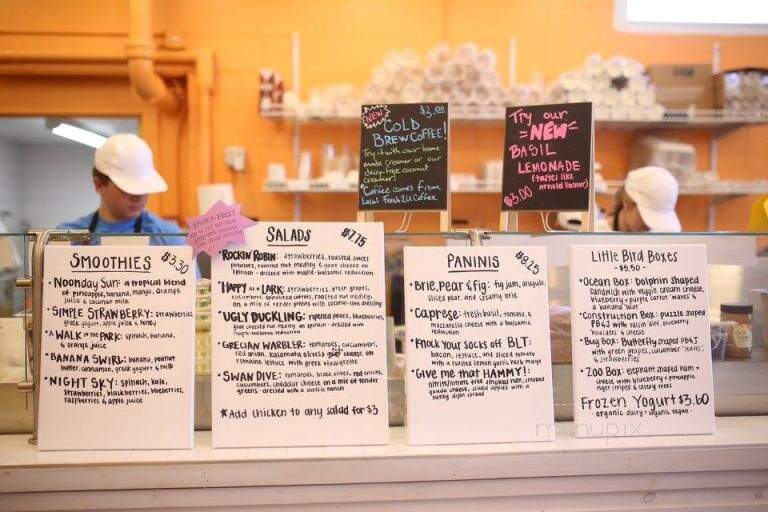 NEW
$3.00
COLD
BREW COFFEE!
Try it with our home-
made creamer or our
dairy-free coconut
creamer!
*Coffee comes from
Local Fresh 2U Coffee
Try our
NEW
BASIL
LEMONADE
(tastes like
Arnold Palmer)
$3.00
DAIRY-FREE?
SMOOTHIES
$3.50
• NOONDAY SUN: a tropical blend
of pineapple, banana, mango, orange
juice & coconut milk
• SIMPLE STRAWBERRY: strawberries,
greek yogurt, apple juice & honey
• A WALK IN THE PARK: spinach, banana,
& orange juice
• BANANA SWIRL: banana, peanut
butter, cinnamon, greek yogurt & milk
• NIGHT SKY: spinach, kale,
strawberries, blackberries, blueberries,
raspberries & apple juice
SALADS
$7.75
• ROCKIN' ROBIN: strawberries, roasted sweet
potatoes, roasted nut medley, & goat cheese on
spinach - dressed with maple-balsamic reduction
• HAPPY AS A LARK: strawberries, green grapes,
cucumbers, spiralized carrots, roasted nut medley,
on a mix of tender greens with creamy-lime dressing
• UGLY DUCKLING: ripened pears, blueberries,
goat cheese nut medley on spinach - dressed with
maple-balsamic reduction
• GRECIAN WARBLER: tomatoes, cucumbers,
red onion, kalamata olives, cheese on
romaine lettuce with greek vinaigrette
• SWAN DIVE: tomatoes, black olives, red onions,
cucumbers, cheddar cheese on a mix of tender
greens - dressed with a classic ranch
*Add chicken to any salad for $3
PANINIS
$8.25
• BRIE, PEAR & FIG: fig jam, arugula,
sliced pear, and creamy brie
• CAPRESE: fresh basil, tomato, &
mozzarella cheese with a balsamic
reduction
• KNOCK YOUR SOCKS OFF BLT:
bacon, lettuce, and sliced tomato
with a roasted lemon garlic herb mayo
• GIVE ME THAT HAMMY!:
nitrite/nitrate free smoked ham, smoked
gouda cheese, sliced apples with a
honey dijon spread
Little Bird Boxes
- $5.50 -
• OCEAN BOX: Dolphin shaped
sandwich with veggie cream cheese,
blueberry + purple carrot "waves" &
a "banana boat"
• CONSTRUCTION BOX: puzzle shaped
PB&J with raisin "dirt", blueberry
"boulders" & cheese
• BUG BOX: Butterfly shaped PB&J
with green grapes, cucumber "leaves"
• ZOO BOX: elephant shaped ham +
cheese with blueberry + pineapple
tiger stripes & celery trees
FROZEN YOGURT $3.60
- organic dairy + organic vegan -
menupix